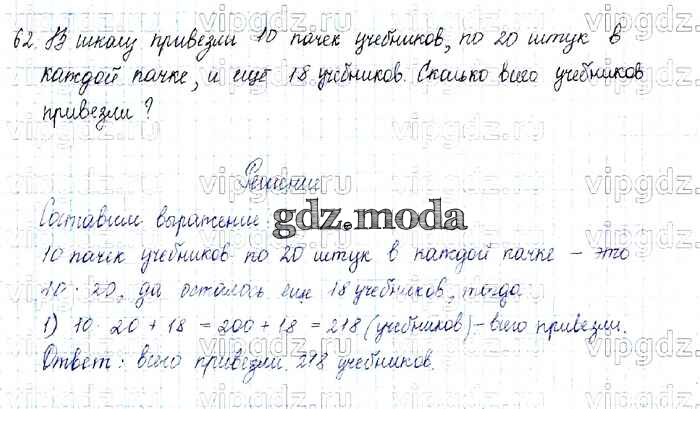 62. В школу привезли 10 пачек учебников, по 20 штук в
каждой пачке, и ещё 18 учебников. Сколько всего учебников
привезли?
Решение
Составим выражение:
10 пачек учебников по 20 штук в каждой пачке – это
10 · 20, да осталось еще 18 учебников, тогда
1) 10 · 20 + 18 = 200 + 18 = 218 (учебников) – всего привезли.
Ответ: всего привезли 218 учебников.
gdz.moda
vipgdz.ru